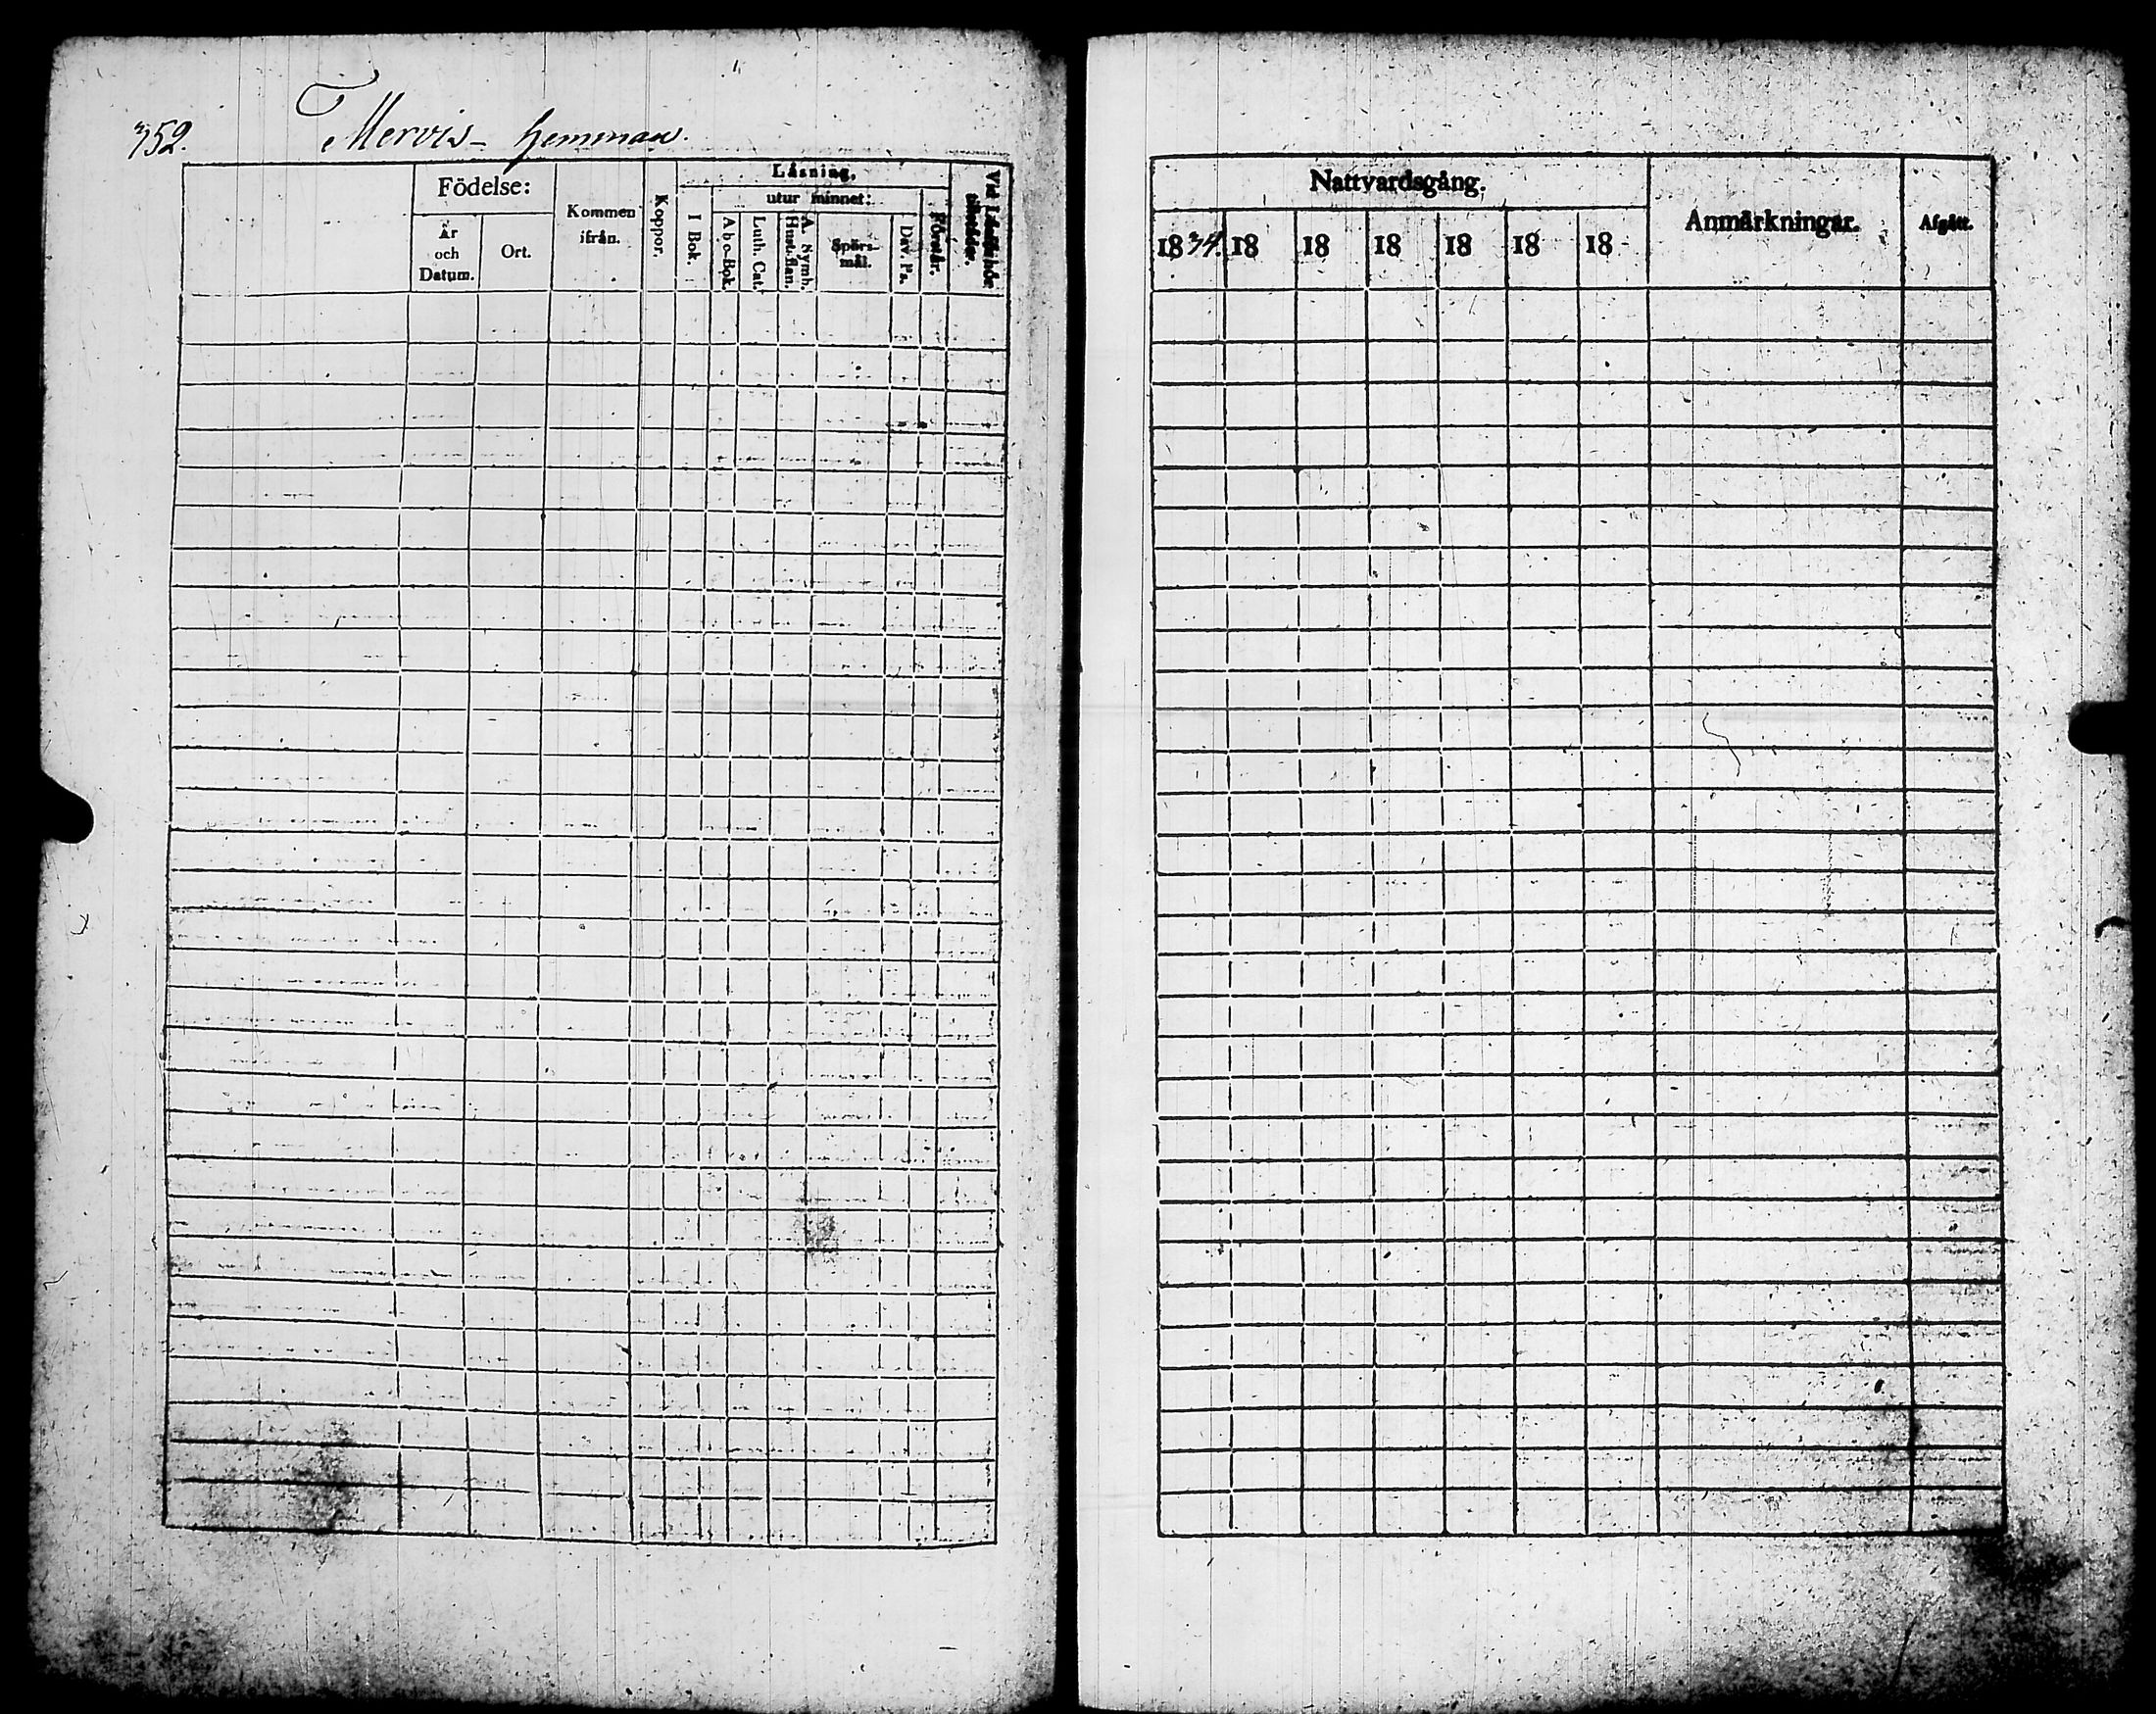 352. Mervis- hemman.
Födelse:
År och Datum.
Ort.
Kommen ifrån.
Koppor.
Läsning.
I Bok.
utur minnet:
Abc-Bok.
Luth. Cat.
A. Symb. Hustaflan.
Spörs-mål.
Dav. Ps.
Förstår.
Nattvardsgång.
1834. 18 18 18 18 18 18
Anmärkningar.
Afgått.